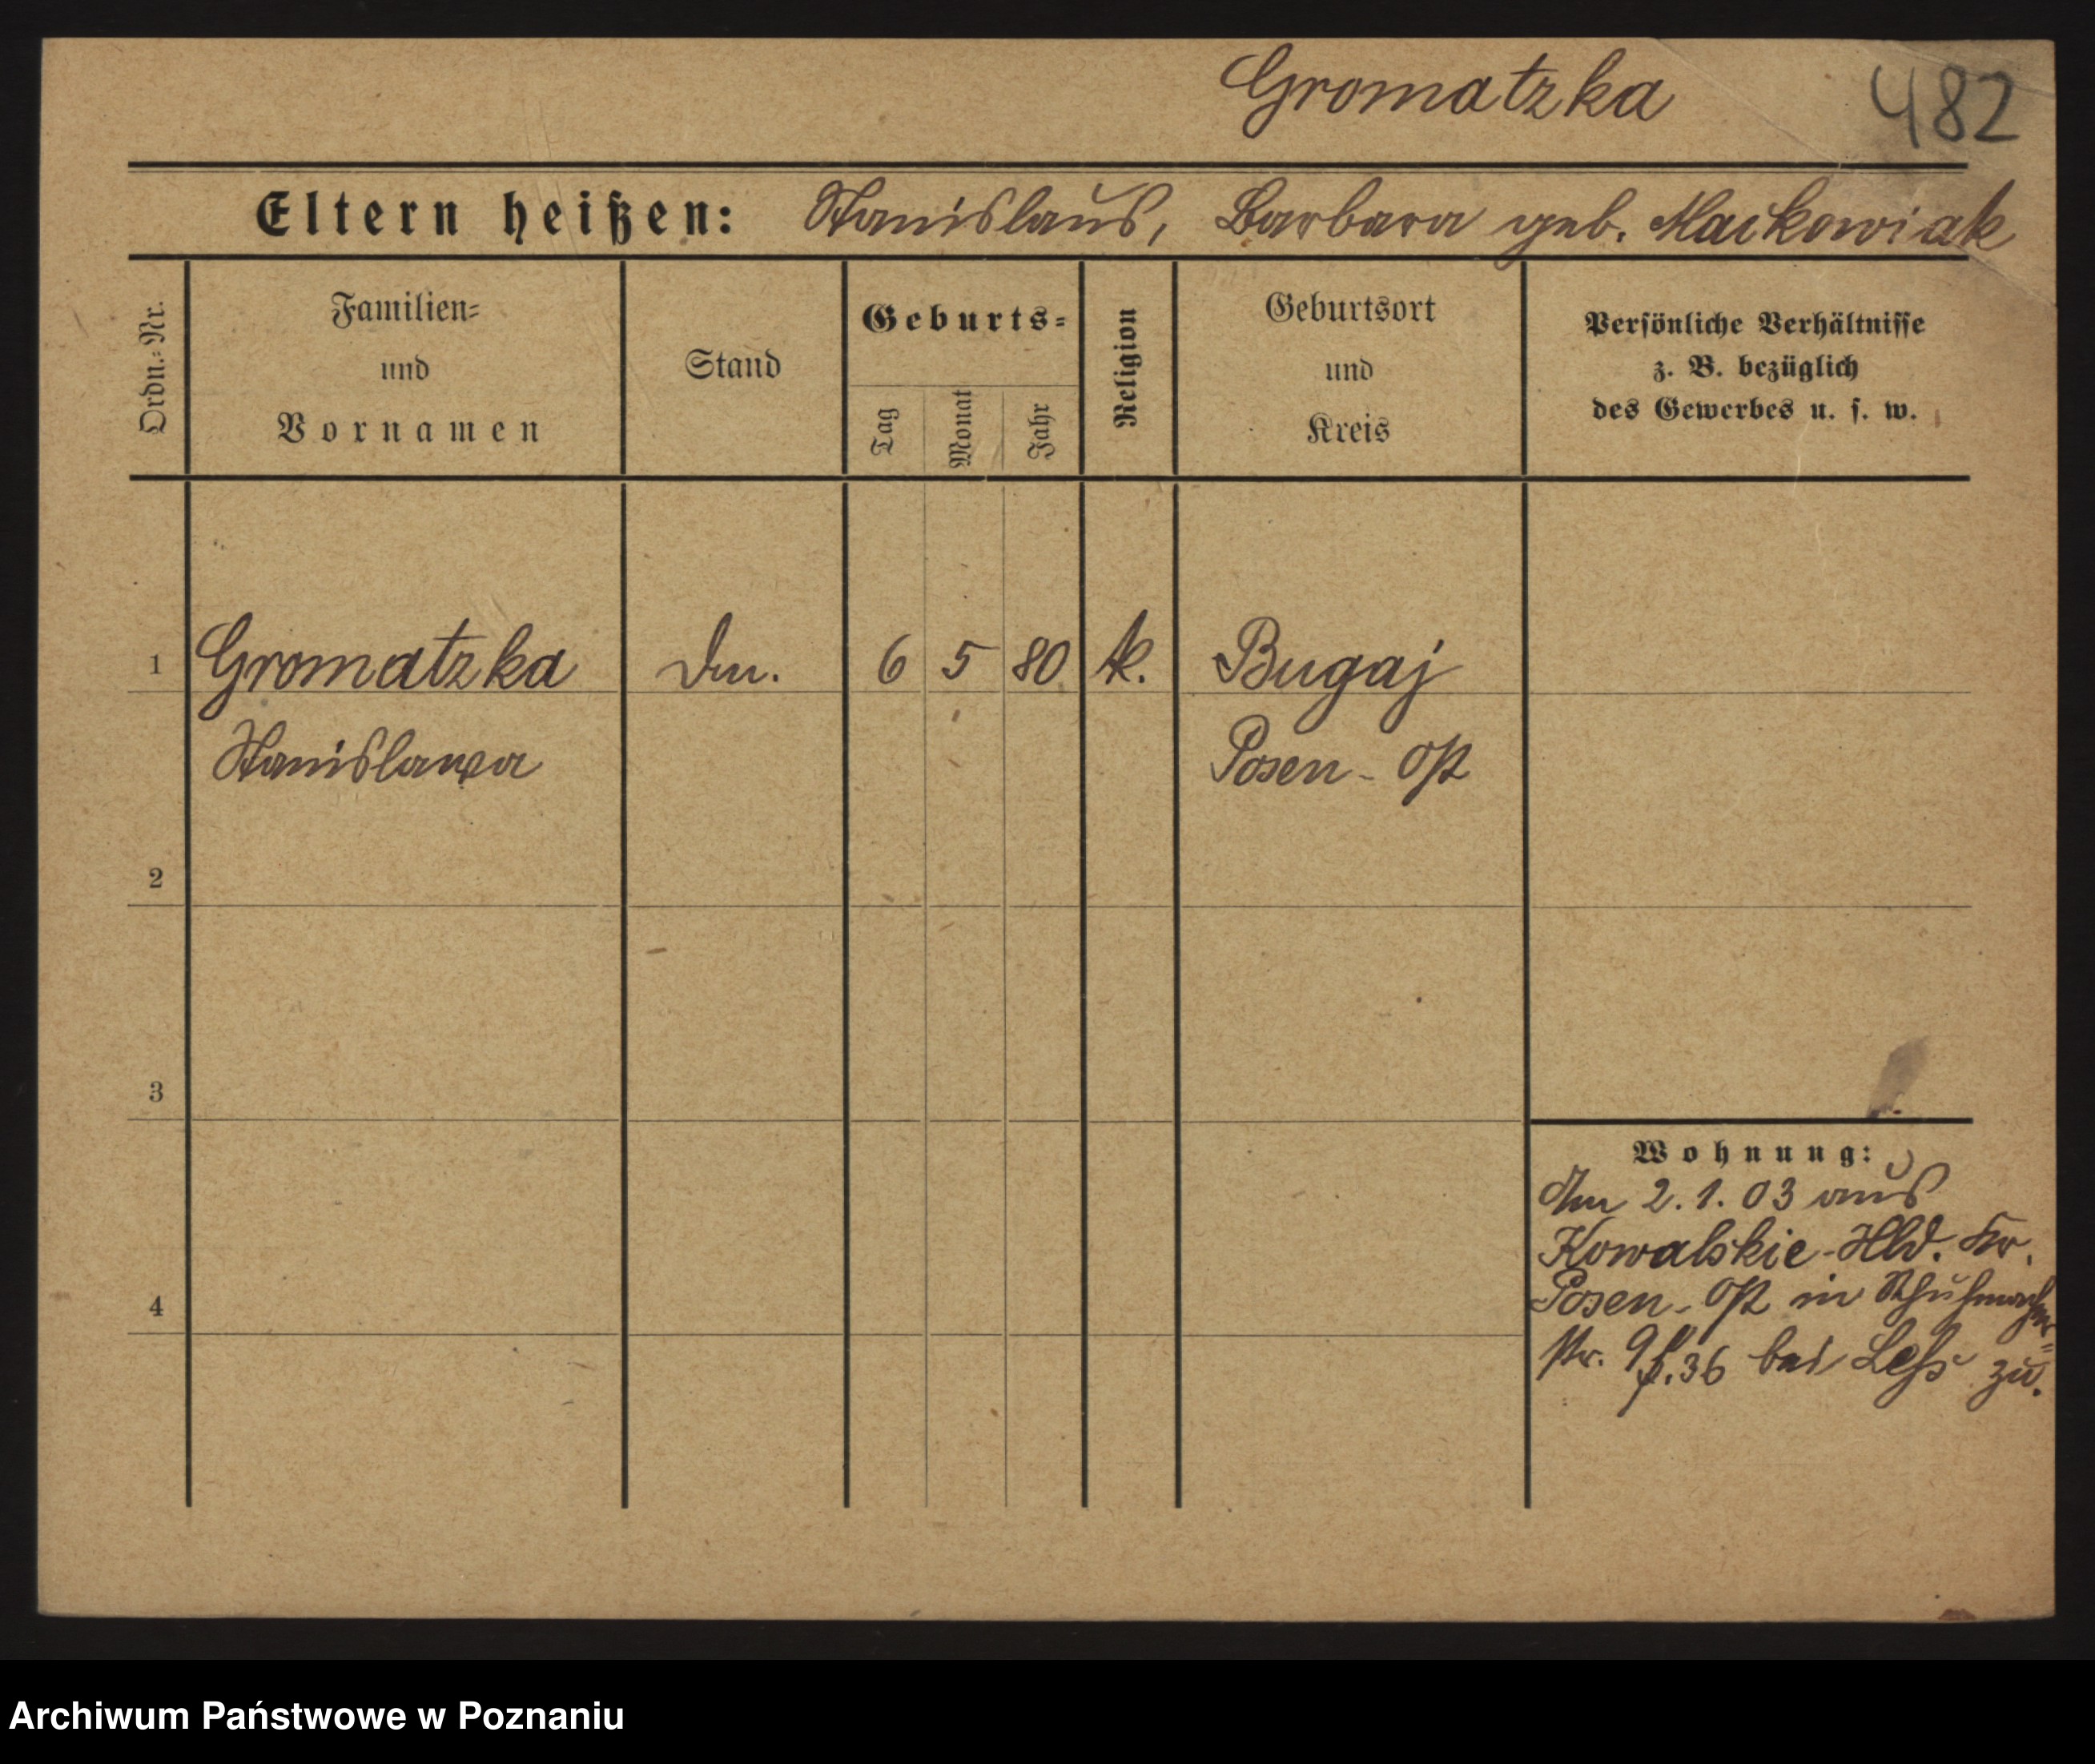 Gromatzka 482
Eltern heißen: Stanislaus, Barbara geb. Maikowiak
Ordn.=Nr.
Familien=
und
Vornamen
Stand
Geburts=
Tag
Monat
Jahr
Religion
Geburtsort
und
Kreis
Persönliche Verhältnisse
z. B. bezüglich
des Gewerbes u. s. w.
1 Gromatzka 6 5 80 k. Bugaj
Stanislawa Posen - Ost
2
3
Wohnung:
Am 2.1.03 aus
Kowalskie-Hld. Kr.
4
Posen-Ost in Schuhmacher=
str. 9 36 bei Leß zu.
Archiwum Państwowe w Poznaniu